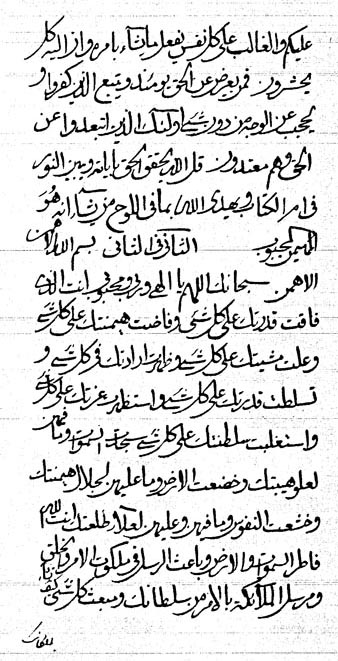 عليكم والغالب على كل نفس يفعل ما يشاء بامره وان اليه كل
يحشرون فمن يعرض عن الحق يومئذ ويتبع الذين كفروا و
يحجب عن الوجه من دون شيء اولئك الذين ابتعدوا عن
الحق وهم معتدون قل الله يحقق الحق باياته ويبين النور
فى امر الكتاب ويهدى الى الله بما فى اللوح من يشاء انه هو
المهيمن المحبوب الثانى فى الثانى بسم الله الاهمن
الاهمن سبحانك اللهم يا الهى وربى ومحبوبى انت الذى
فاقت قدرتك على كل شيء وفاضت هيمنتك على كل شيء
وعلت مشيتك على كل شيء وظهرت ارادتك فى كل شيء و
تسلطت قدرتك على كل شيء واستظهرت عزتك على كل شيء
واستغلبت سلطنتك على كل شيء سبحت السموات وما فيهن
لعلو هيبتك وخضعت الارض وما عليهن لجلال هيمنتك
وخشعت النفوس وما فيهن وعليهن لعلاء طلعتك انت اللهم
فاطر السموات والارض وباعث الرسل فى ملكوت الامر والخلق
ومرسل الملائكة بالامر من سلطانك ومبعث كل شيء